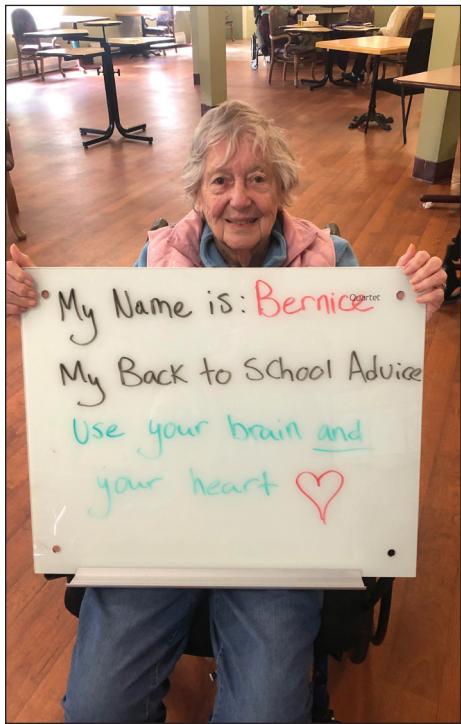 My Name is: Bernice
Quartet
My Back to School Advice
Use your brain and
your heart